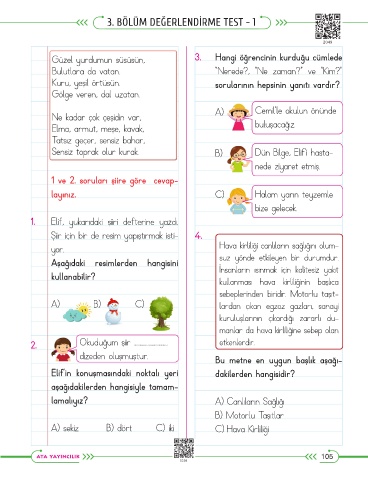 3. BÖLÜM DEĞERLENDİRME TEST - 1
Güzel yurdumun süsüsün,
Bulutlara da vatan.
Kuru, yeşil örtüsün.
Gölge veren, dal uzatan.
Ne kadar çok çeşidin var,
Elma, armut, meşe, kavak,
Tatsız geçer, sensiz bahar,
Sensiz toprak olur kurak.
1 ve 2. soruları şiire göre cevap-
layınız.
1. Elif, yukarıdaki şiiri defterine yazdı.
Şiir için bir de resim yapıştırmak isti-
yor.
Aşağıdaki resimlerden hangisini
kullanabilir?
A) B) C)
2. Okuduğum şiir ..............
dizeden oluşmuştur.
Elif'in konuşmasındaki noktalı yeri
aşağıdakilerden hangisiyle tamam-
lamalıyız?
A) sekiz B) dört C) iki
3. Hangi öğrencinin kurduğu cümlede
"Nerede?, "Ne zaman?" ve "Kim?"
sorularının hepsinin yanıtı vardır?
A) Cemil'le okulun önünde
buluşacağız.
B) Dün Bilge, Elif'i hasta-
nede ziyaret etmiş.
C) Halam yarın teyzemle
bize gelecek.
4. Hava kirliliği canlıların sağlığını olum-
suz yönde etkileyen bir durumdur.
İnsanların ısınmak için kalitesiz yakıt
kullanması hava kirliliğinin başlıca
sebeplerinden biridir. Motorlu taşıt-
lardan çıkan egzoz gazları, sanayi
kuruluşlarının çıkardığı zararlı du-
manlar da hava kirliliğine sebep olan
etkenlerdir.
Bu metne en uygun başlık aşağı-
dakilerden hangisidir?
A) Canlıların Sağlığı
B) Motorlu Taşıtlar
C) Hava Kirliliği
ATA YAYINCILIK
105